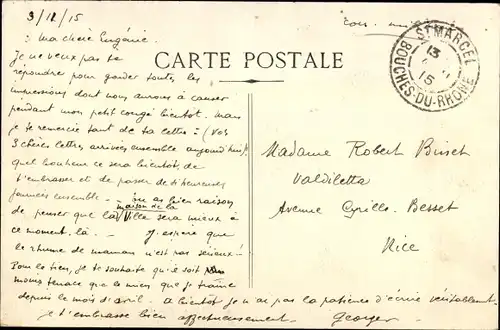 3/12/15
Ma chère Eugénie.
Je ne veux pas te
répondre pour garder toutes les
impressions dont nous aurons à causer
pendant mon petit congé bientôt. Mais
je te remercie tant de ta lettre! (Vos
3 chères lettres arrivées ensemble aujourd'hui!)
quel bonheur ce sera bientôt, de
t'embrasser et de passer de si heureuses
journées ensemble - tu as bien raison
de penser que la maison de la Ville sera mieux à
ce moment-là. - J'espère que
le rhume de maman n'est pas sérieux!
Pour le tien, je te souhaite qu'il soit
moins tenace que le mien que je traîne
depuis le mois d'avril. - à bientôt je n'ai pas la patience d'écrire véritablement.
je t'embrasse bien affectueusement. Georges
CARTE POSTALE
ST MARCEL
13
15
BOUCHES-DU-RHONE
Madame Robert Binet
Valdiletta
Avenue Cyrille Besset
Nice